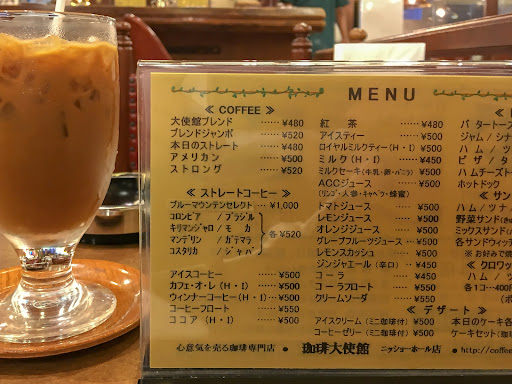 MENU
≪ COFFEE ≫
大使館ブレンド ……… ¥480
ブレンドジャンボ …… ¥520
本日のストレート …… ¥480
アメリカン ……… ¥500
ストロング ……… ¥520
≪ ストレートコーヒー ≫
ブルーマウンテンセレクト … ¥1,000
コロンビア / ブラジル
キリマンジャロ / モカ
マンデリン / ガテマラ
コスタリカ / ジャバ
各 ¥520
アイスコーヒー ……… ¥500
カフェ・オ・レ(H・I) …… ¥500
ウィンナーコーヒー(H・I) … ¥500
コーヒーフロート …… ¥550
ココア(H・I) …… ¥500
紅茶 ……… ¥480
アイスティー ……… ¥500
ロイヤルミルクティー(H・I) … ¥500
ミルク(H・I) ……… ¥450
ミルクセーキ(牛乳・卵・バニラ) … ¥500
ACCジュース ……… ¥550
(リンゴ・人参・キャベツ・蜂蜜)
トマトジュース ……… ¥500
レモンジュース ……… ¥500
オレンジジュース …… ¥500
グレープフルーツジュース … ¥500
レモンスカッシュ …… ¥500
ジンジャエール(辛口) … ¥450
コーラ ……… ¥450
コーラフロート ……… ¥550
クリームソーダ ……… ¥550
≪ デザート ≫
アイスクリーム(ミニ珈琲付) … ¥500
コーヒーゼリー(ミニ珈琲付) … ¥500
バタートース
ジャム / シナ
ハム / ツ
ピザ / タ
ハムチーズト
ホットドック
≪ サン
ハム / ツナ
野菜サンド(き
ミックスサンド(
各サンドウィッチ
※ お好みで焼
≪ クロワッ
ハム / ツナ
各1コ…400円
本日のケーキ各
ケーキセット(
心意気を売る珈琲専門店 ・ 珈琲大使館 ニッショーホール店 ・ http://coffee